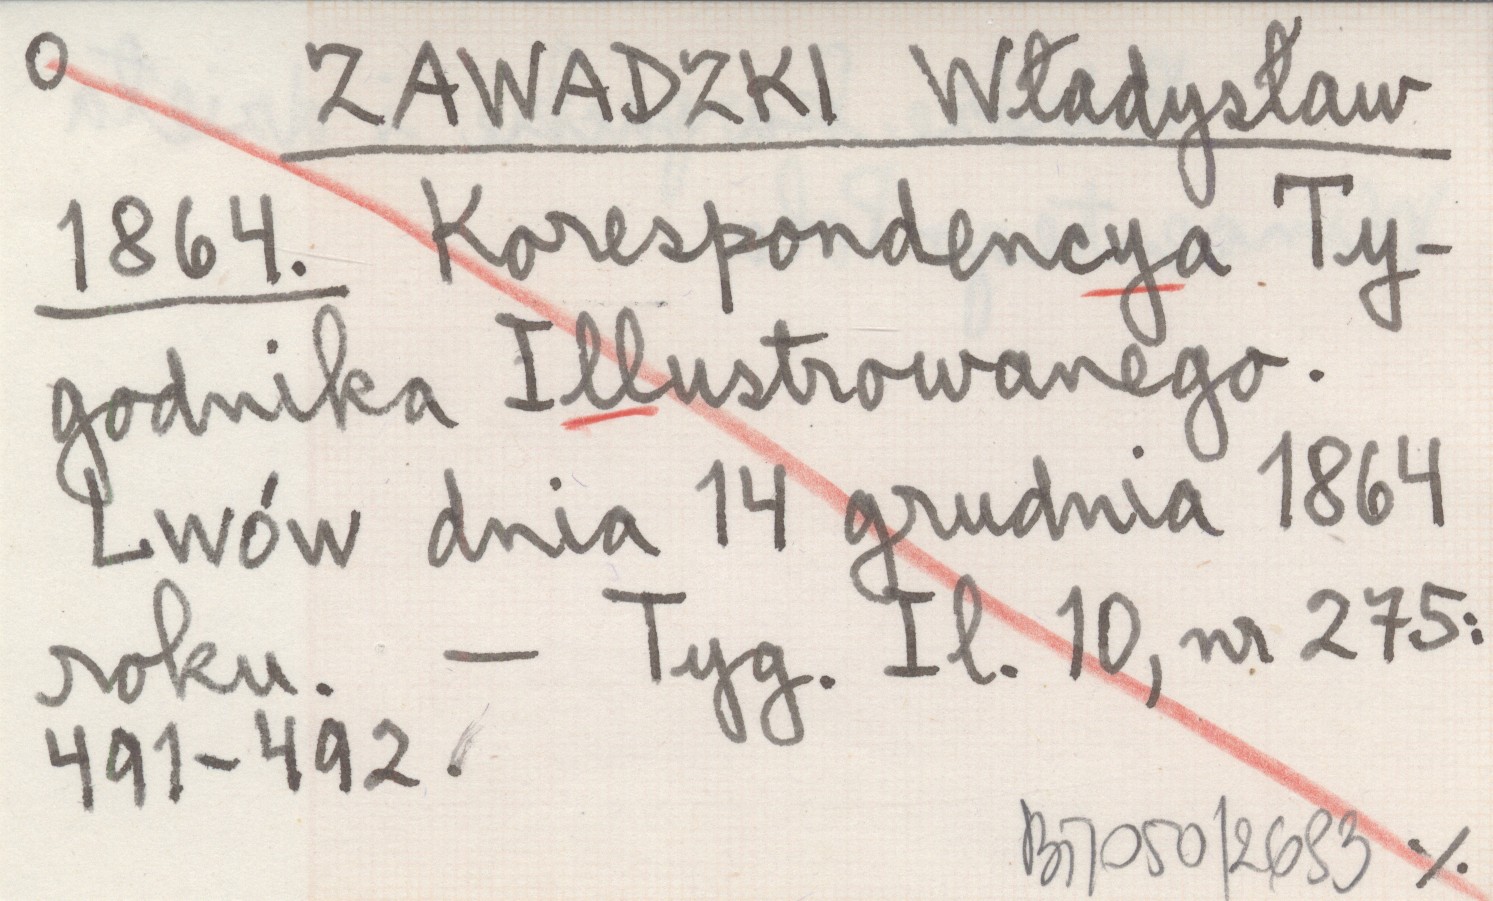 O ZAWADZKI Władysław
1864. Korespondencya Ty-
godnika Illustrowanego.
Lwów dnia 14 grudnia 1864
roku. — Tyg. Il. 10, nr 275:
491-492.
050/2683 ./.